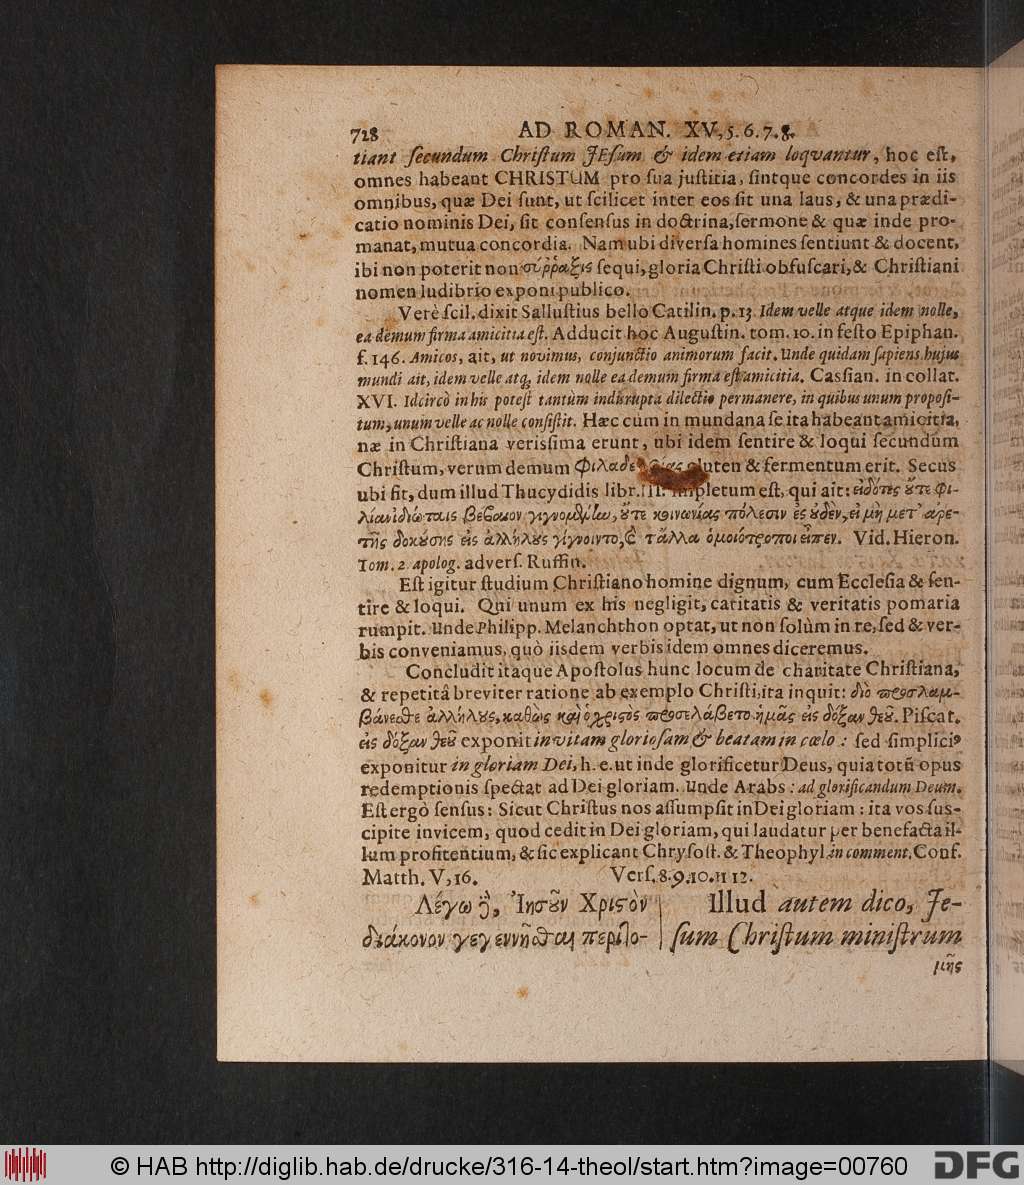 728 AD ROMAN. XV, 5. 6. 7. 8.
tiant ſecundum Chriſtum JEſum & idem etiam loqvantur, hoc eſt,
omnes habeant CHRISTUM pro ſua juſtitia, ſintque concordes in iis
omnibus, quæ Dei ſunt, ut ſcilicet inter eos ſit una laus, & una prædi-
catio nominis Dei, ſit conſenſus in doctrina, ſermone & quæ inde pro-
manat, mutua concordia. Nam ubi diverſa homines ſentiunt & docent,
ibi non poterit non σύῤῥαξις ſequi, gloria Chriſti obfuſcari, & Chriſtiani
nomen ludibrio exponi publico.
Verè ſcil. dixit Salluſtius bello Catilin. p. 13. Idem velle atque idem nolle,
ea demum firma amicitia eſt. Adducit hoc Auguſtin. tom. 10. in feſto Epiphan.
f. 146. Amicos, ait, ut novimus, conjunctio animorum facit. Unde quidam ſapiens hujus
mundi ait, idem velle atq; idem nolle ea demum firma eſt amicitia. Caſſian. in collat.
XVI. Idcircò in his poteſt tantùm indirupta dilectio permanere, in quibus unum propoſi-
tum, unum velle ac nolle conſiſtit. Hæc cùm in mundana ſe ita habeant amicitia,
næ in Chriſtiana verisſima erunt, ubi idem ſentire & loqui ſecundùm
Chriſtum, verum demum gluten & fermentum erit. Secus
ubi fit, dum illud Thucydidis libr. III. impletum eſt, qui ait: εἰδότες ὅτε φι-
λίαν ἰδιώταις βέβαιον γιγνομένην, ὅτε κοινωνίας πόλεσιν ἐς ὐδὲν, εἰ μὴ μετ’ ἀρε-
τῆς δοκούσης εἰς ἀλλήλους γίγνοιντο, & τἄλλα ὁμοιότροποι εἶπεν. Vid. Hieron.
Tom. 2. apolog. adverſ. Ruffin.
Eſt igitur ſtudium Chriſtiano homine dignum, cum Eccleſia & ſen-
tire & loqui. Qui unum ex his negligit, caritatis & veritatis pomaria
rumpit. Unde Philipp. Melanchthon optat, ut non ſolùm in re, ſed & ver-
bis conveniamus, quò iisdem verbis idem omnes diceremus.
Concludit itaque Apoſtolus hunc locum de charitate Chriſtiana,
& repetitâ breviter ratione ab exemplo Chriſti, ita inquit: διὸ προσλαμ-
βάνεσθε ἀλλήλους, καθὼς καὶ ὁ χριστὸς προσελάβετο ἡμᾶς εἰς δόξαν θεοῦ. Piſcat.
εἰς δόξαν θεοῦ exponit in vitam glorioſam & beatam in cœlo: ſed ſimplici9
exponitur in gloriam Dei, h. e. ut inde glorificetur Deus, quia totũ opus
redemptionis ſpectat ad Dei gloriam. Unde Arabs: ad glorificandum Deum.
Eſt ergò ſenſus: Sicut Chriſtus nos aſſumpſit in Dei gloriam: ita vos ſus-
cipite invicem, quod cedit in Dei gloriam, qui laudatur per benefacta il-
lum profitentium, & ſic explicant Chryſoſt. & Theophyl. in comment. Conf.
Matth. V, 16. Verſ. 8. 9. 10. 11 12.
Λέγω δὲ, Ἰησοῦν Χριστὸν
διάκονον γεγεννῆσθαι περιτο-
Illud autem dico, Je-
ſum Chriſtum miniſtrum
μῆς
© HAB http://diglib.hab.de/drucke/316-14-theol/start.htm?image=00760 DFG